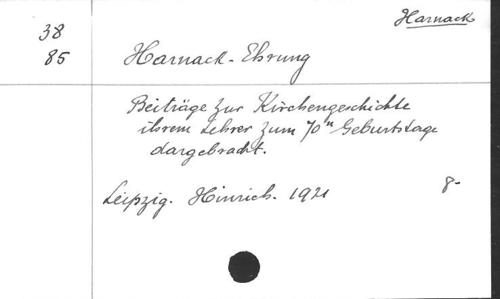 Harnack
38
85
Harnack-Ehrung
Beiträge zur Kirchengeschichte
ihrem Lehrer zum 70n Geburtstage
dargebracht.
Leipzig. Hinrich. 1921
8-